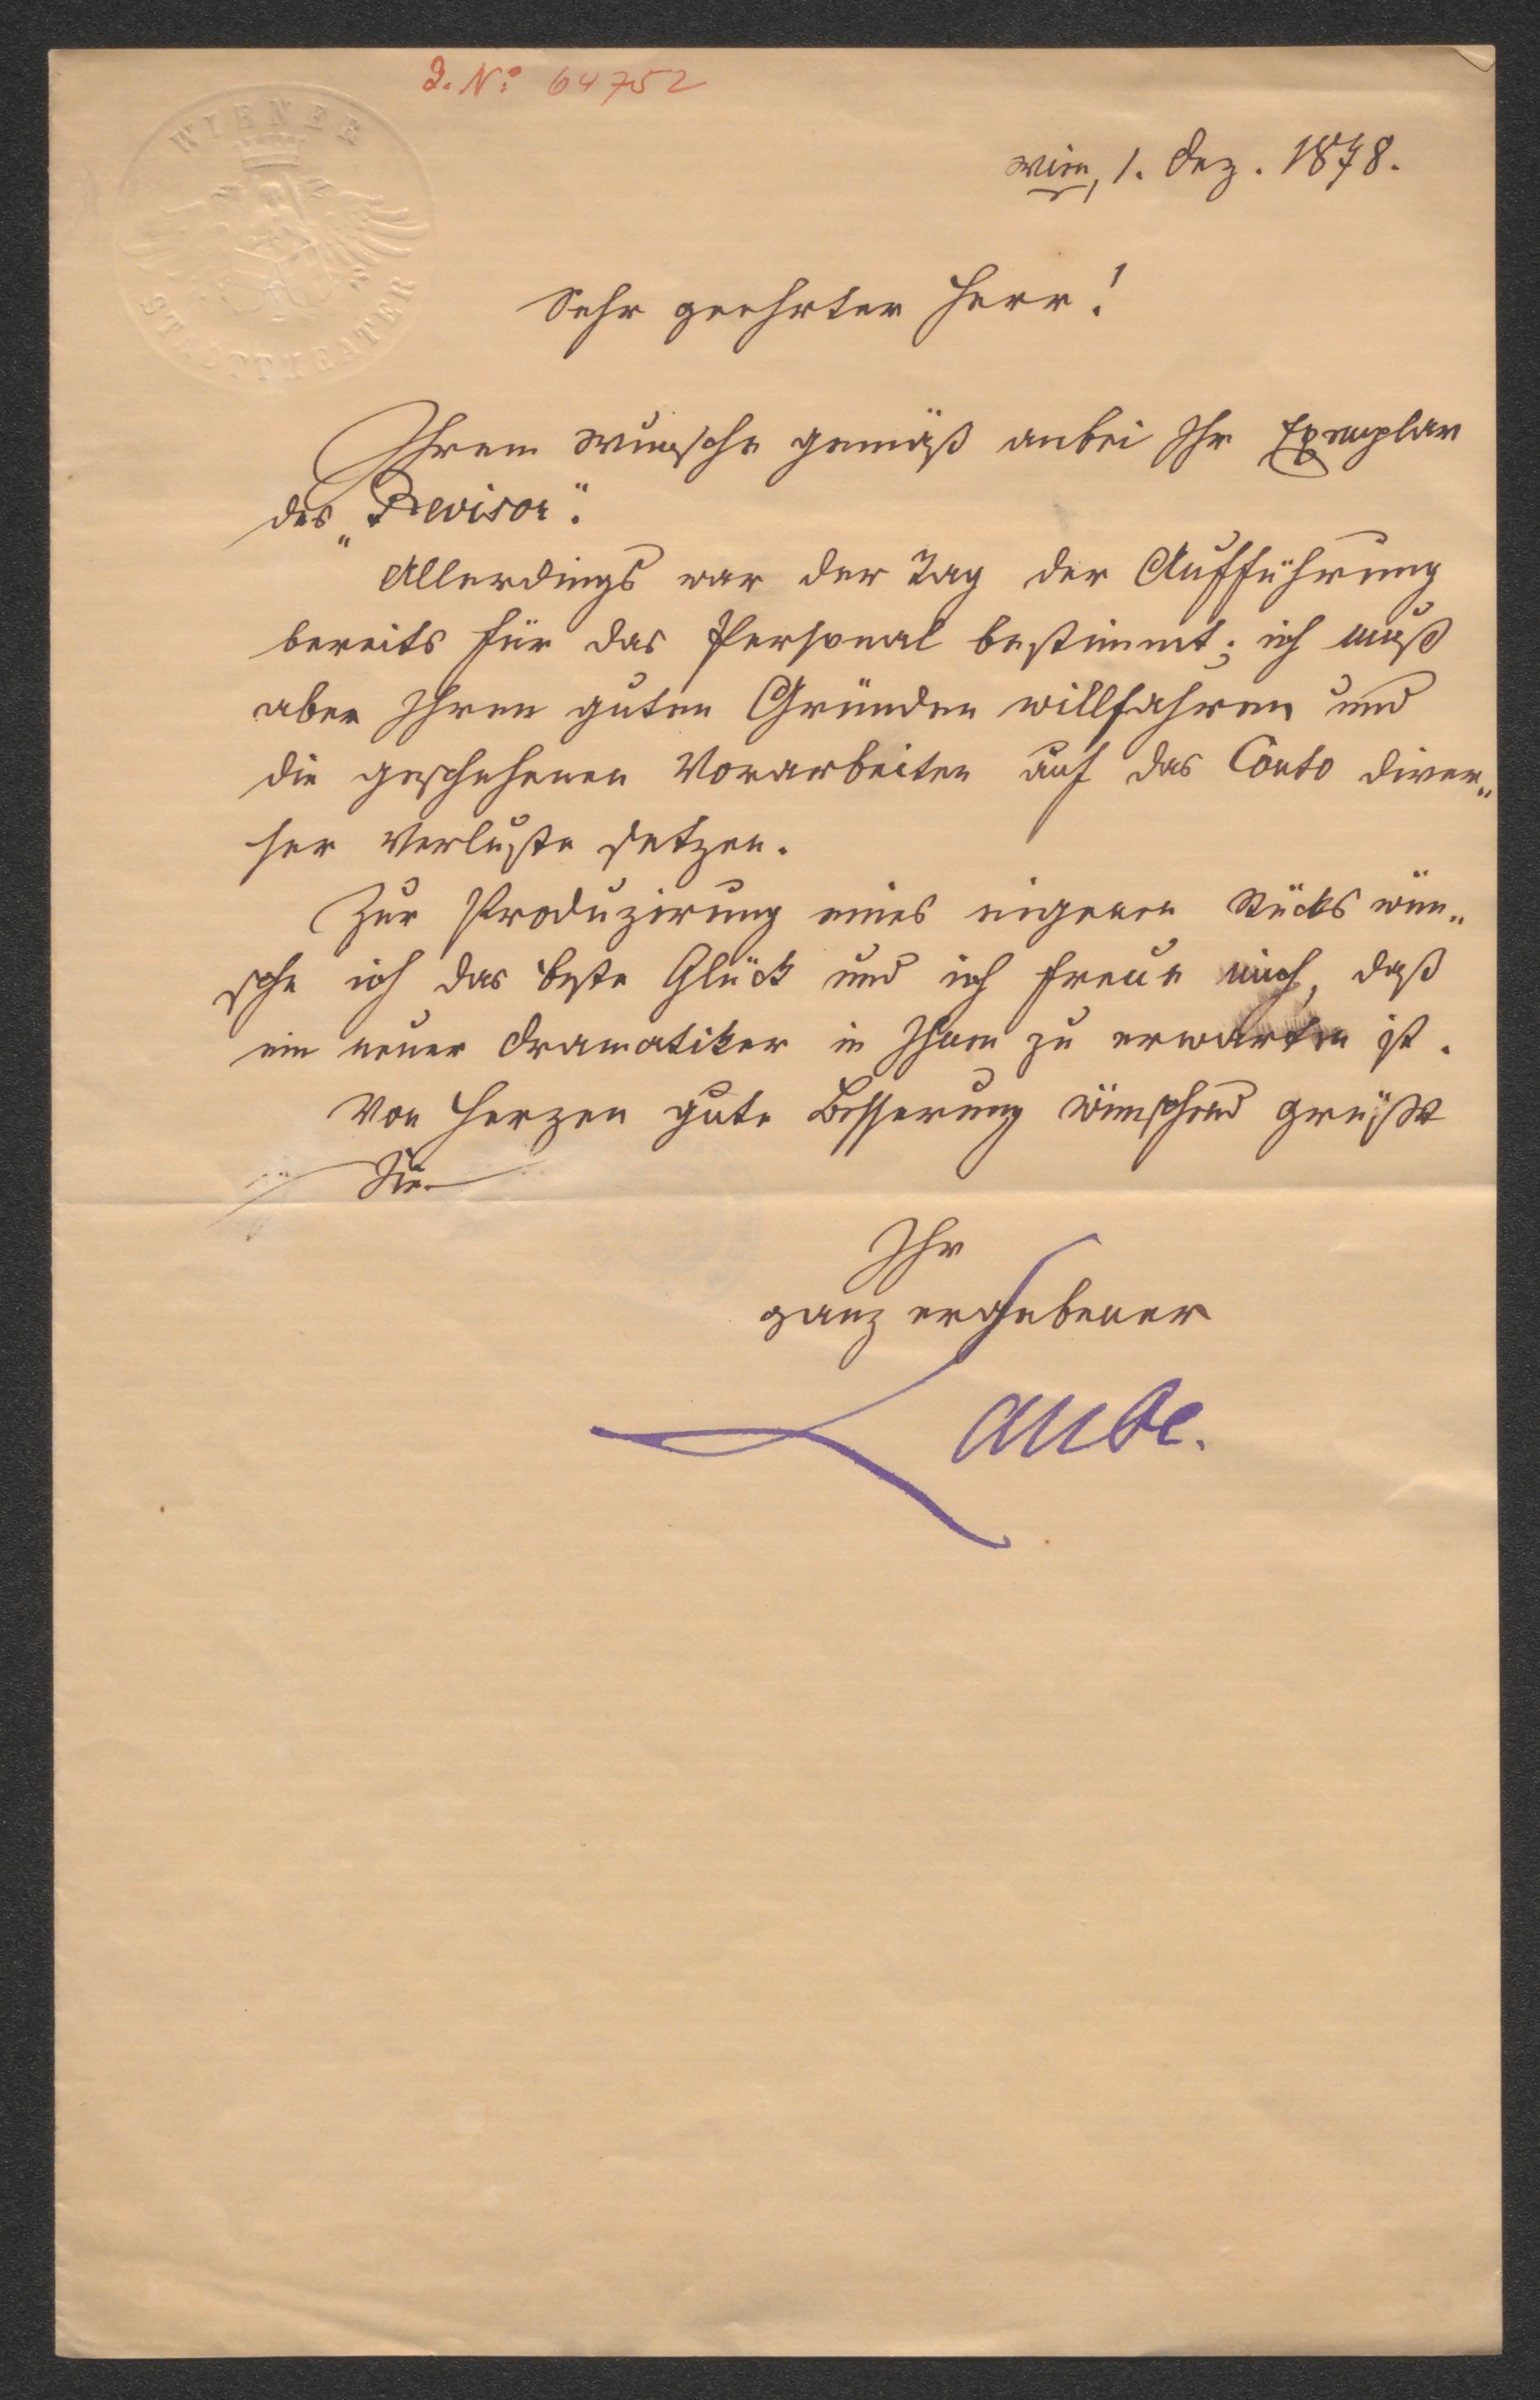 J. N: 64752
WIENER
STADTTHEATER
Wien, 1. Dez. 1878.
Sehr geehrter Herr!
Ihrem Wunsche gemäß anbei Ihr Exemplar
des „Revisor“.
Allerdings war der Tag der Aufführung
bereits für das Personal bestimmt; ich muß
aber Ihren guten Gründen willfahren und
die geschehenen Vorarbeiten auf das Conto diver„
ser Verluste setzen.
Zur Produzirung eines eigenen Stücks wün„
sche ich das beste Glück und ich freue mich, daß
ein neuer Dramatiker in Ihnen zu erwarten ist.
Von Herzen gute Besserung wünschend grüßt
Sie
Ihr
ganz ergebener
Laube.